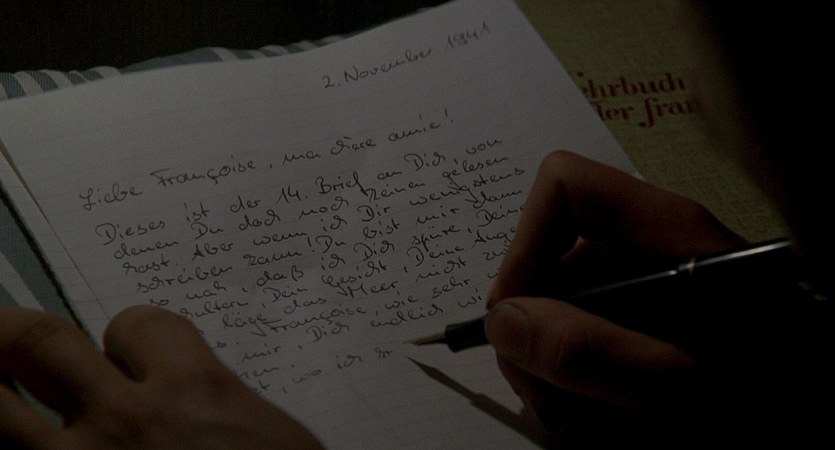 2. November 1941
Liebe Françoise, ma chère amie!
Dieses ist der 14. Brief an Dich, von
denen Du doch noch keinen gelesen
hast. Aber wenn ich Dir wenigstens
schreiben kann! Du bist mir dann
so nah, daß ich Dich spüre, Deine
Schultern, Dein Gesicht, Deine Auge
läge das Meer nicht
Françoise, wie sehr
mir, Dich endlich wi
wo ich
ehrbuch
der fran